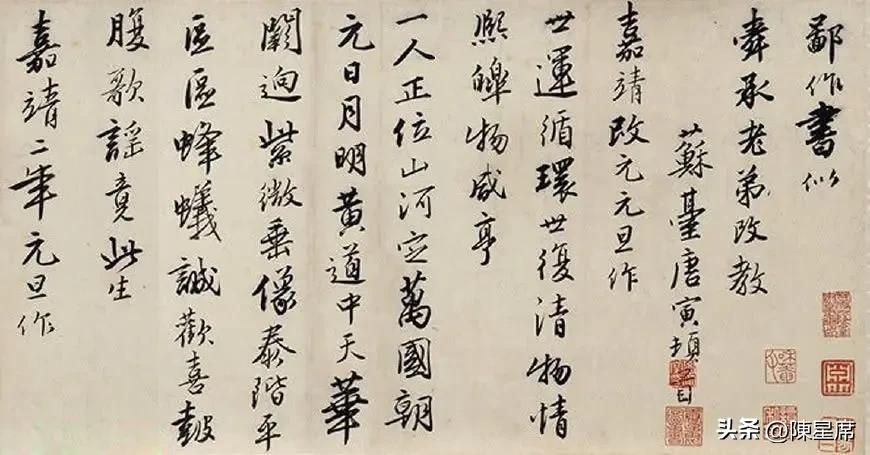 鄙作書似
舜承老弟改教
蘇臺唐寅頓
嘉靖改元元旦作
世運循環世復清物情
熙皞物咸亨
一人正位山河定萬國朝
元日月明黃道中天華
闕迥紫微垂像泰階平
區區蜂蟻誠歡喜鼓
腹歌謠竟此生
嘉靖二年元旦作
头条 @陳星席